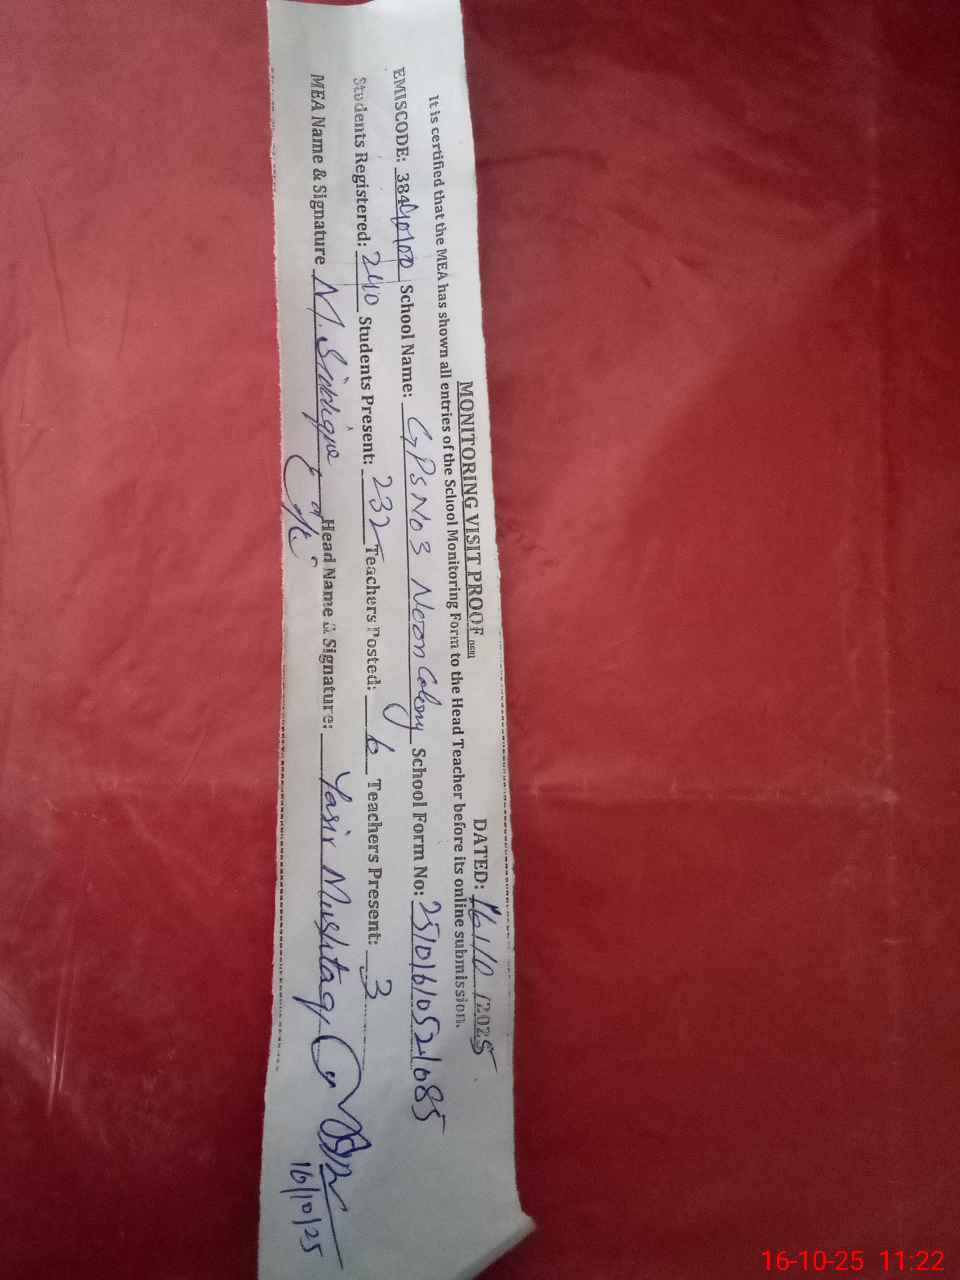 MONITORING VISIT PROOF DATED: 16/10/2025
It is certified that the MEA has shown all entries of the School Monitoring Form to the Head Teacher before its online submission.
EMISCODE: 38440100 School Name: GPS No 3 Noon Colony School Form No:
Students Registered: 240 Students Present: 232 Teachers Posted: 6 Teachers Present: 3
MEA Name & Signature M. Siddique Head Name & Signature: Yasir Mushtaq
16/10/25
16-10-25 11:22